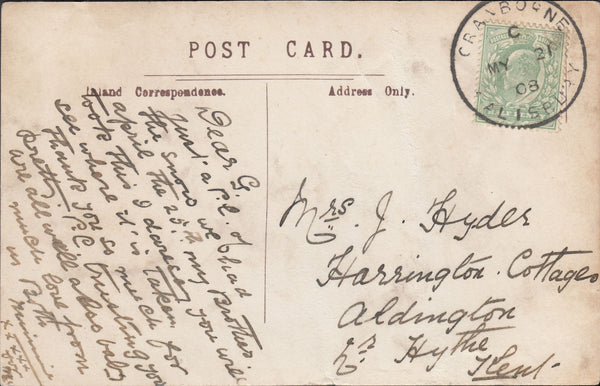 POST CARD.
Inland Correspondence.
Address Only.
CRANBORNE
C
MY 21
08
SALISBURY
Dear G.
Just a P.C. of
the snow we had
april the 25th my Brother
took this I daresay you will
see where it is taken
Thank you so much for
pretty P.C. trusting you
are all well also baby
much love from
us Both
Minnie
Mrs. J. Hyder
Harrington Cottages
Aldington
Nr Hythe
Kent